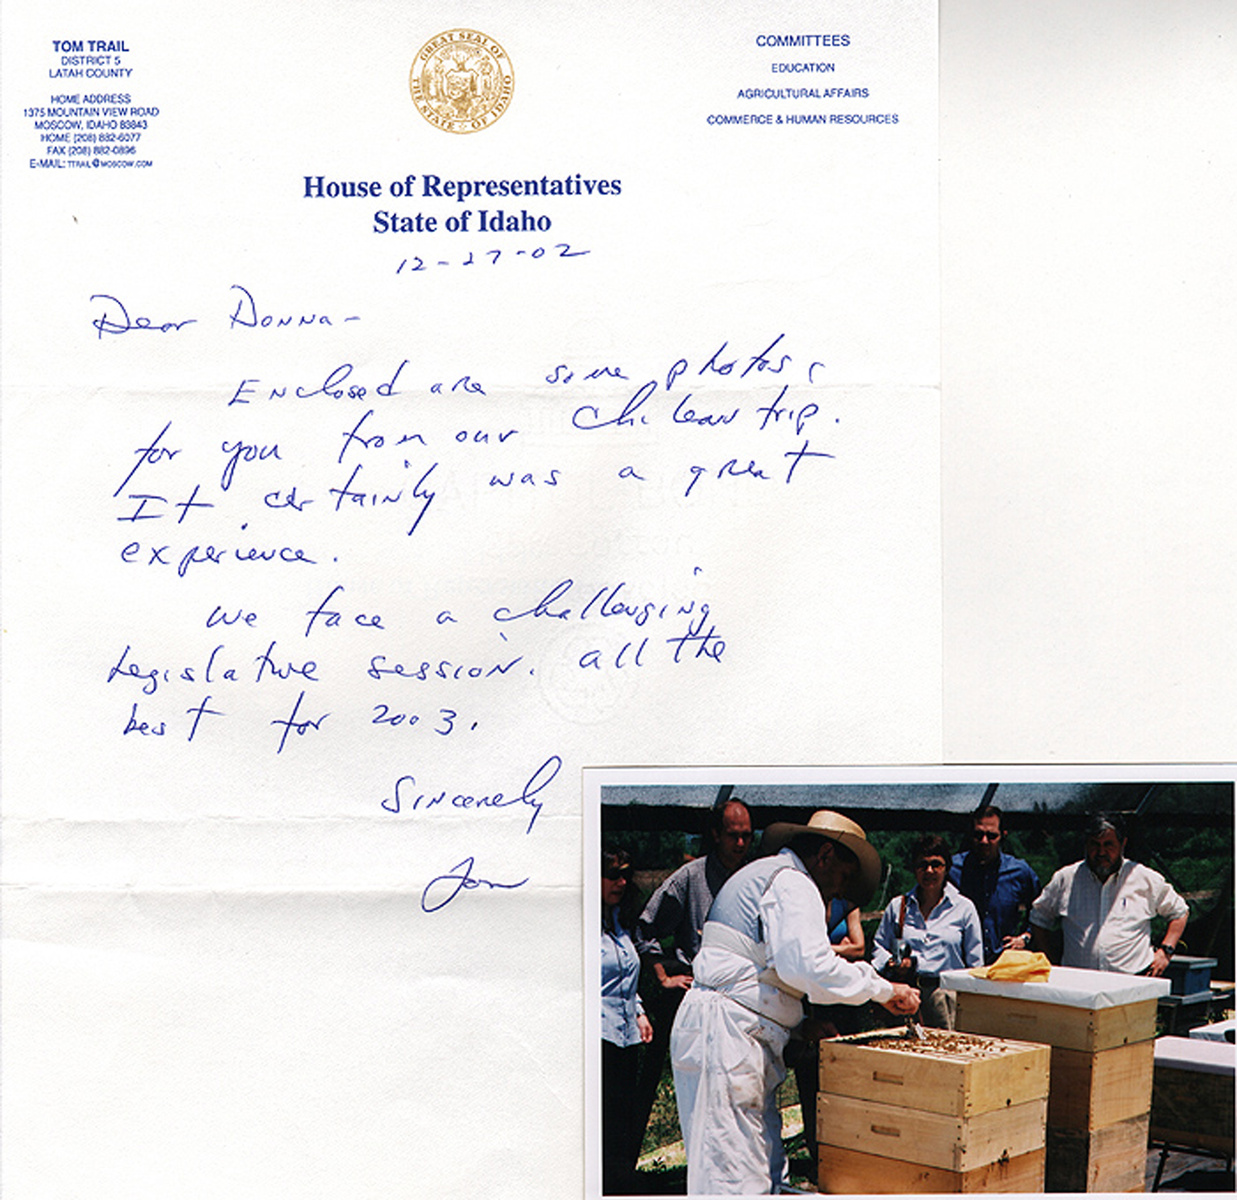 TOM TRAIL
DISTRICT 5
LATAH COUNTY
HOME ADDRESS
1375 MOUNTAIN VIEW ROAD
MOSCOW, IDAHO 83843
HOME (208) 882-6077
FAX (208) 882-0896
E-MAIL: TTRAIL@MOSCOW.COM
GREAT SEAL OF
THE STATE OF IDAHO
COMMITTEES
EDUCATION
AGRICULTURAL AFFAIRS
COMMERCE & HUMAN RESOURCES
House of Representatives
State of Idaho
12-27-02
Dear Donna-
Enclosed are some photos
for you from our Chilean trip.
It certainly was a great
experience.
We face a challenging
legislative session. all the
best for 2003.
Sincerely
Tom